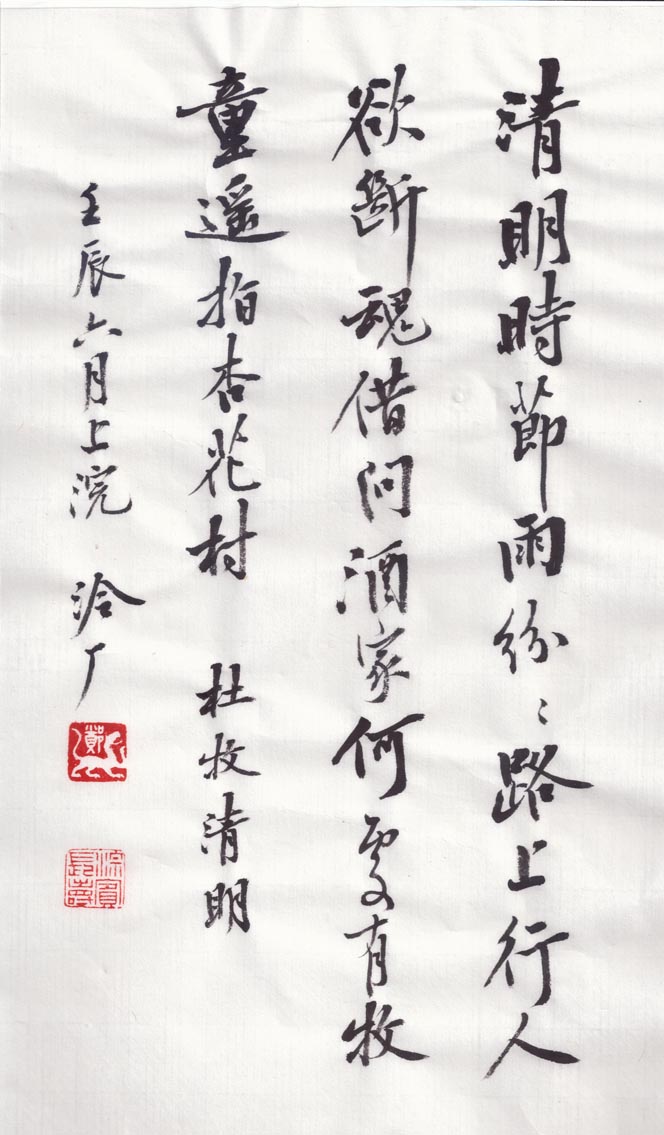 清明時節雨紛〻路上行人
欲斷魂借问酒家何處有牧
童遥指杏花村 杜牧清明
壬辰六月上浣 洽厂